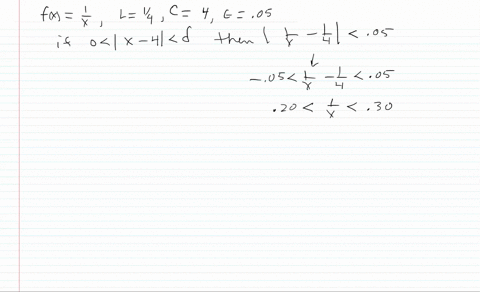 f(x) = 1/x, L = 1/4, C = 4, ε = .05
if 0 < | x - 4 | < δ then | 1/x - 1/4 | < .05
↓
-.05 < 1/x - 1/4 < .05
.20 < 1/x < .30